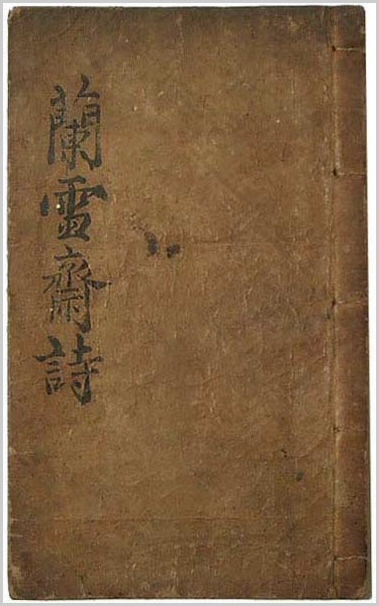 蘭雪齋詩